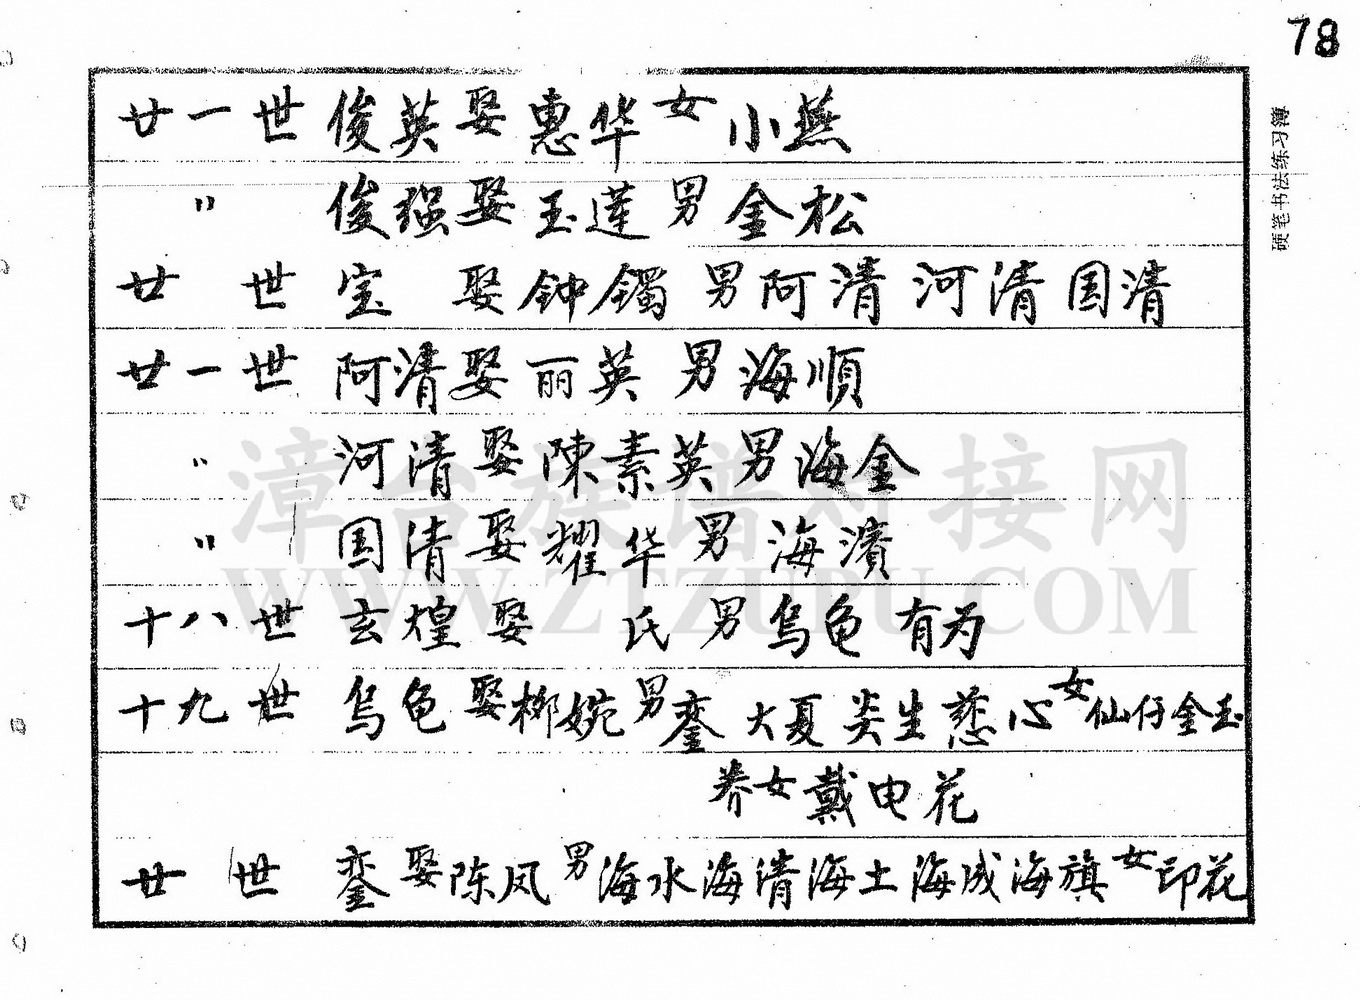 78
硬笔书法练习簿
廿一世 俊英娶惠华 女小燕
〃 俊强娶玉莲 男金松
廿 世 宝 娶钟镯 男阿清 河清 国清
廿一世 阿清娶丽英 男海顺
〃 河清娶陳素英 男海金
〃 国清娶耀华 男海濱
十八世 玄煌娶 氏 男乌龟 有为
十九世 乌龟娶榔婉 男銮 大夏 炎生 慈心 女仙仔金玉
养女戴电花
廿 世 銮娶陈凤 男海水海清海土海成海旗 女印花
漳台族谱对接网
WWW.ZTZUPU.COM